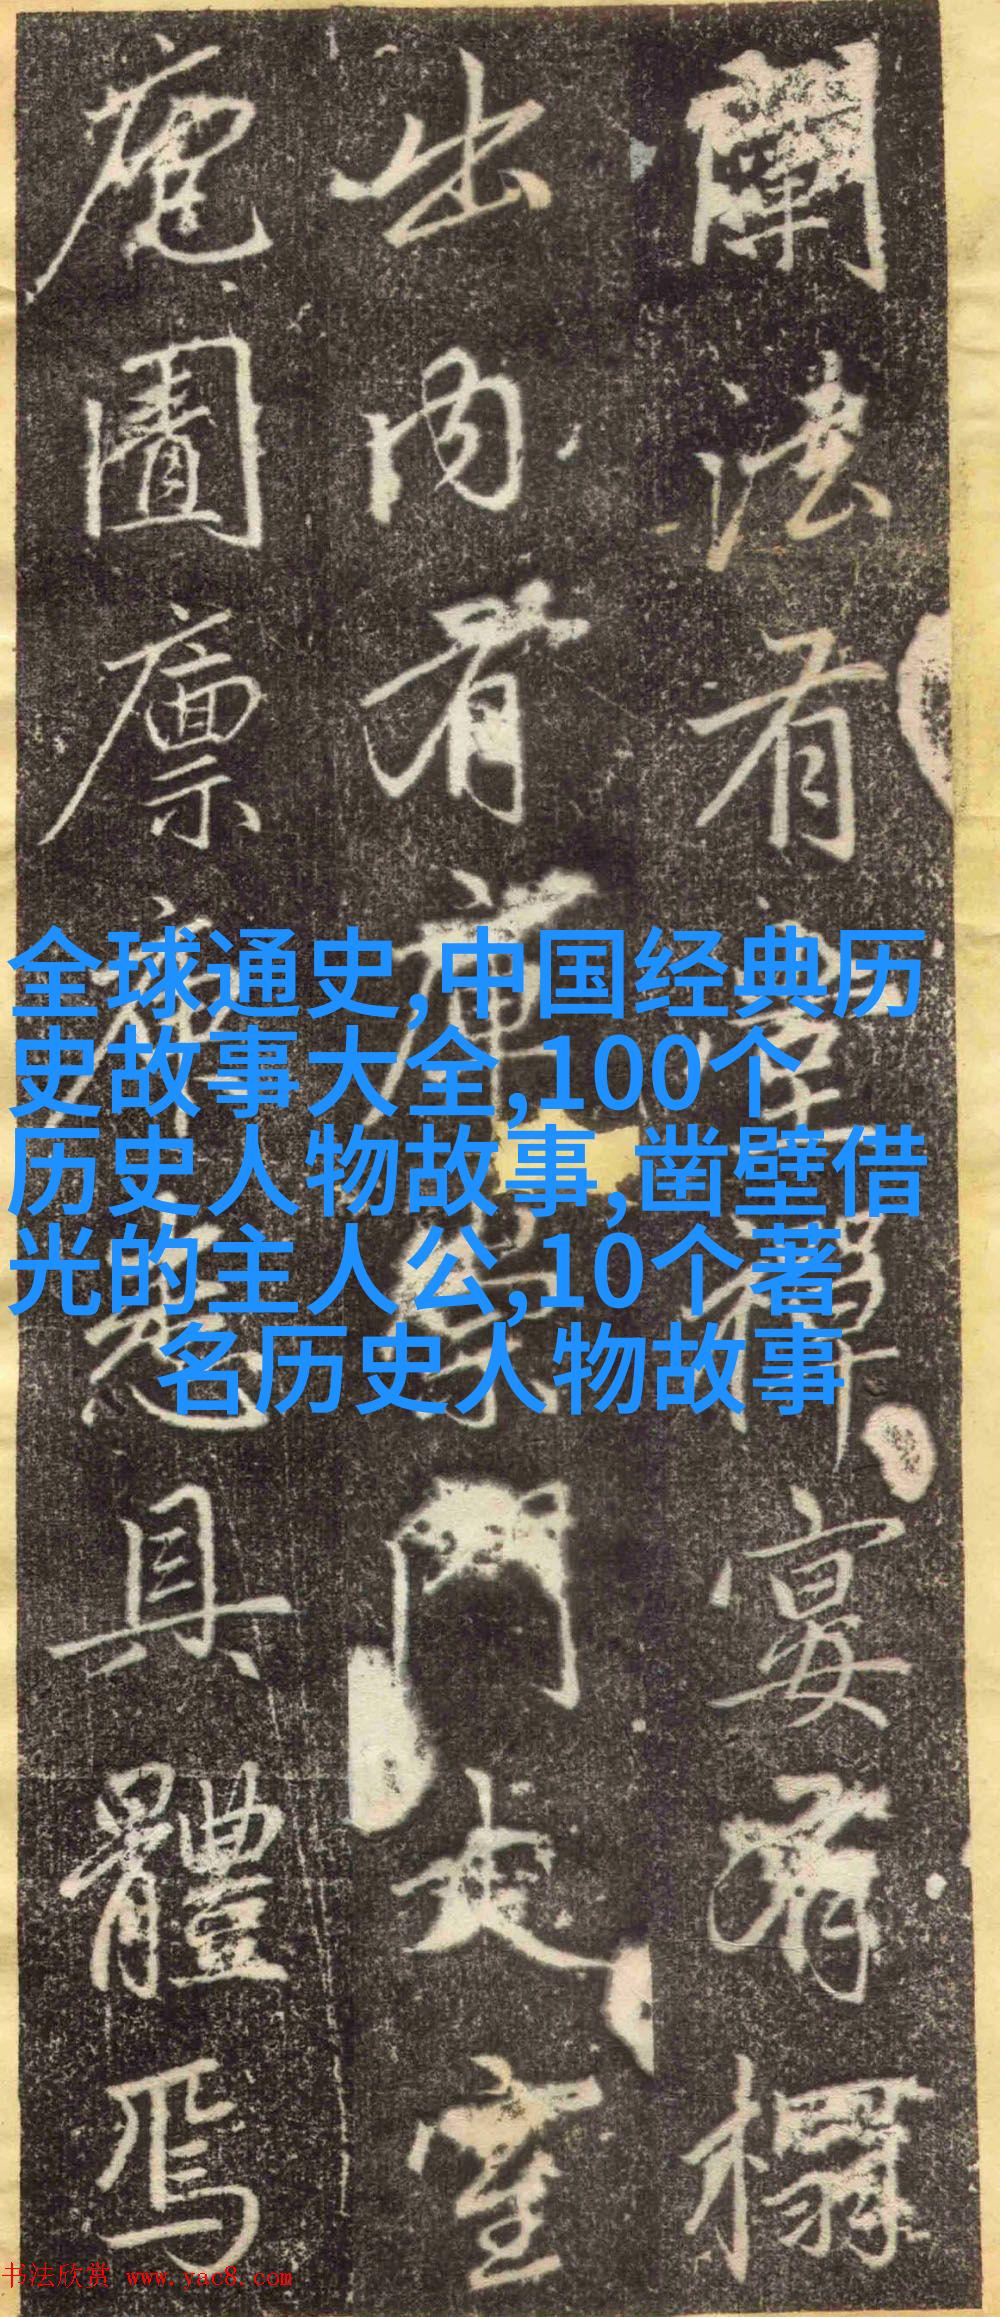 闡法有堂禪宴有榻
出内有庫門室
庖廩悉具體焉
全球通史,中国经典历
史故事大全,100个
历史人物故事,凿壁借
光的主人公,10个著
名历史人物故事
书法欣赏 www.yac8.com